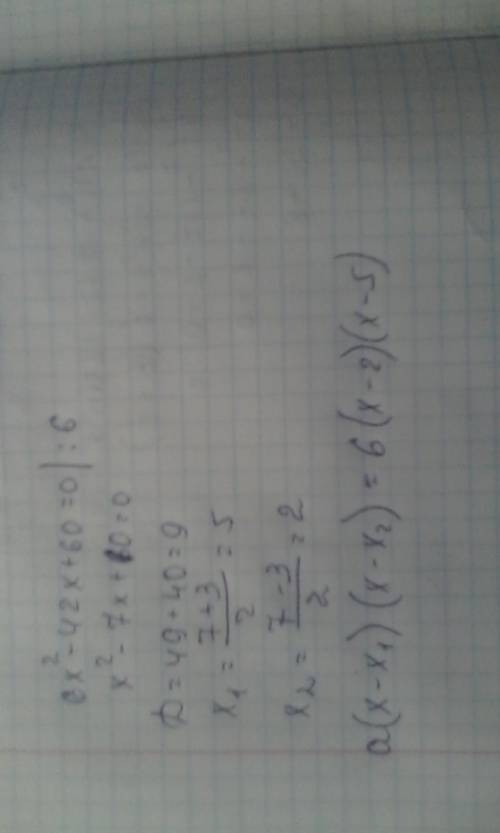 6x² - 42x + 60 = 0 | : 6
x² - 7x + 10 = 0
D = 49 + 40 = 9
x₁ = (7 + 3)/2 = 5
x₂ = (7 - 3)/2 = 2
a(x - x₁)(x - x₂) = 6(x - 2)(x - 5)